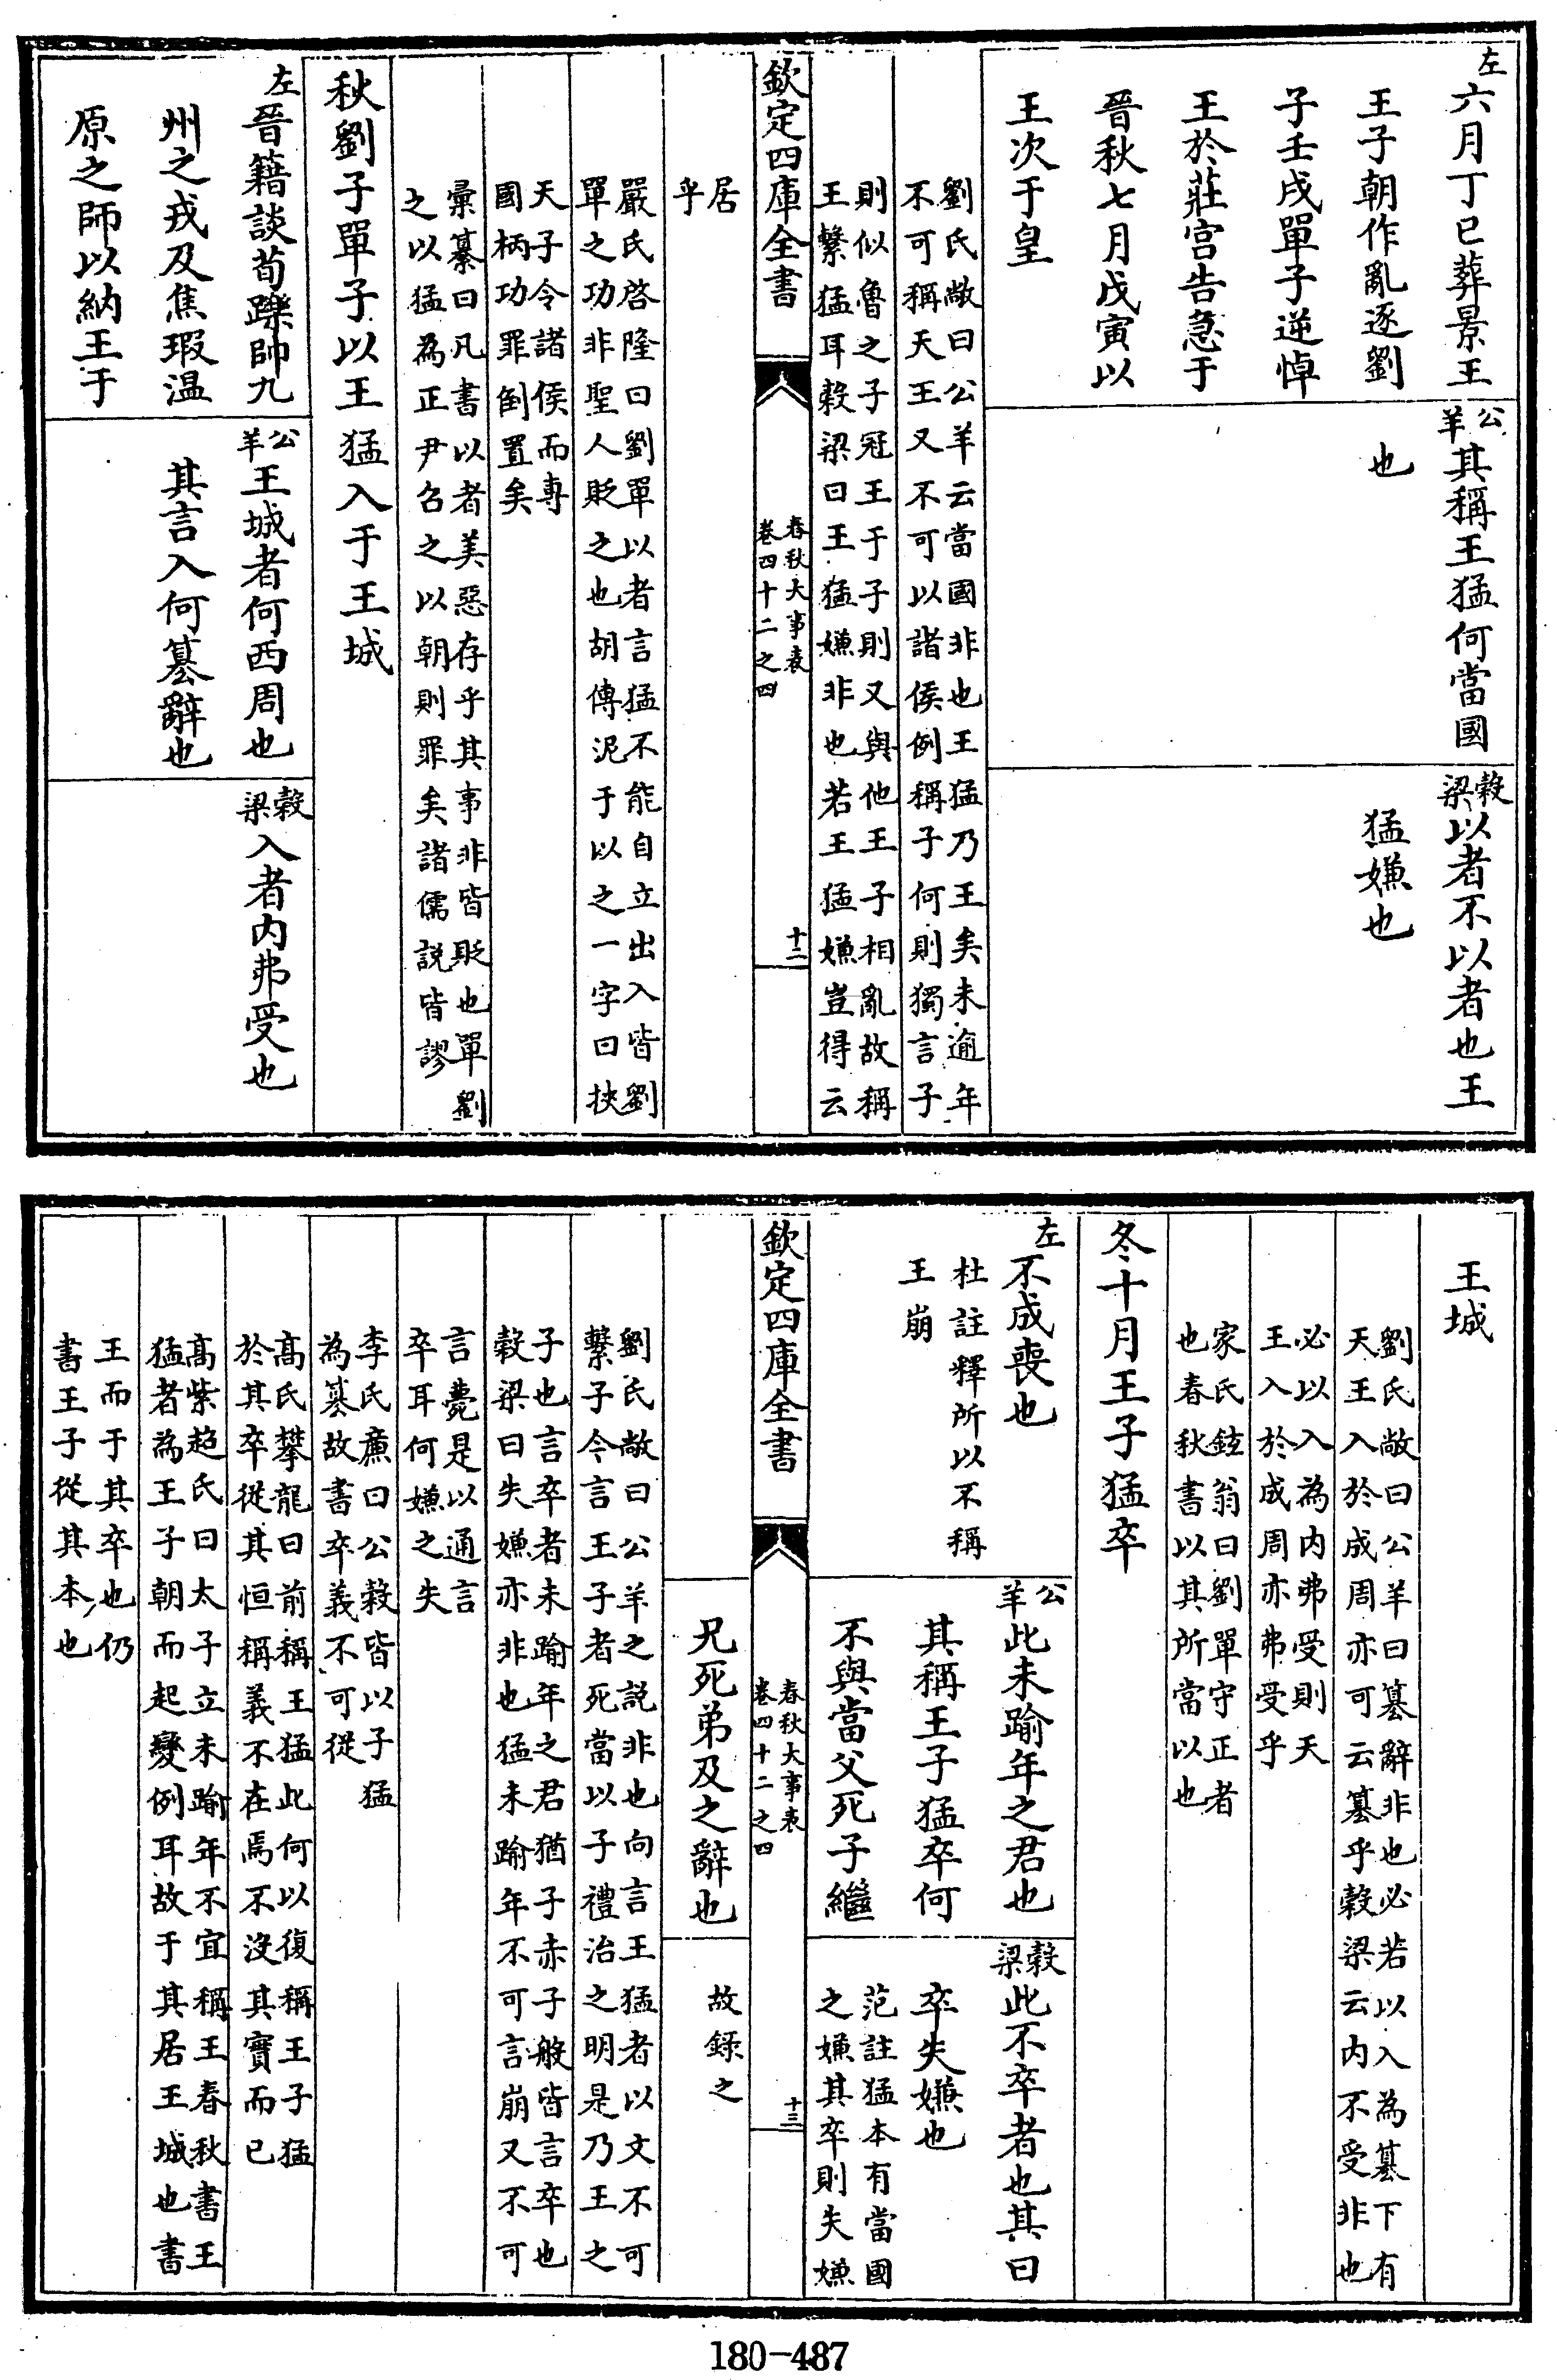 左六月丁巳葬景王
王子朝作亂逐劉
子壬戌單子逆悼
王於莊宫告急于
晉秋七月戊寅以
王次于皇
公羊其稱王猛何當國
也
穀梁以者不以者也王
猛嫌也
劉氏敞曰公羊云當國非也王猛乃王矣未逾年
不可稱天王又不可以諸侯例稱子何則獨言子
則似魯之子冠王于子則又與他王子相亂故稱
王繫猛耳穀梁曰王猛嫌非也若王猛嫌豈得云
欽定四庫全書
春秋大事表
卷四十二之四
十二
居
乎
嚴氏啓隆曰劉單以者言猛不能自立出入皆劉
單之功非聖人貶之也胡傳泥于以之一字曰挾
天子令諸侯而專
國柄功罪倒置矣
彙纂曰凡書以者美惡存乎其事非皆貶也單劉
之以猛為正尹召之以朝則罪矣諸儒説皆謬
秋劉子單子以王猛入于王城
左晉籍談荀躒帥九
州之戎及焦瑕温
原之師以納王于
公羊王城者何西周也
其言入何篡辭也
穀梁入者内弗受也
王城
劉氏敞曰公羊曰篡辭非也必若以入為篡下有
天王入於成周亦可云篡乎穀梁云内不受非也
必以入為内弗受則天
王入於成周亦弗受乎
家氏鉉翁曰劉單守正者
也春秋書以其所當以也
冬十月王子猛卒
左不成喪也
杜註釋所以不稱
王崩
公羊此未踰年之君也
其稱王子猛卒何
不與當父死子繼
兄死弟及之辭也
穀梁此不卒者也其曰
卒失嫌也
范註猛本有當國
之嫌其卒則失嫌
故錄之
欽定四庫全書
春秋大事表
卷四十二之四
十三
劉氏敞曰公羊之説非也向言王猛者以文不可
繫子今言王子者死當以子禮治之明是乃王之
子也言卒者未踰年之君猶子赤子般皆言卒也
穀梁曰失嫌亦非也猛未踰年不可言崩又不可
言薨是以通言
卒耳何嫌之失
李氏廉曰公穀皆以子猛
為篡故書卒義不可從
高氏攀龍曰前稱王猛此何以復稱王子猛
於其卒從其恒稱義不在焉不沒其實而已
高紫超氏曰太子立未踰年不宜稱王春秋書王
猛者為王子朝而起變例耳故于其居王城也書
王而于其卒也仍
書王子從其本也
180-487